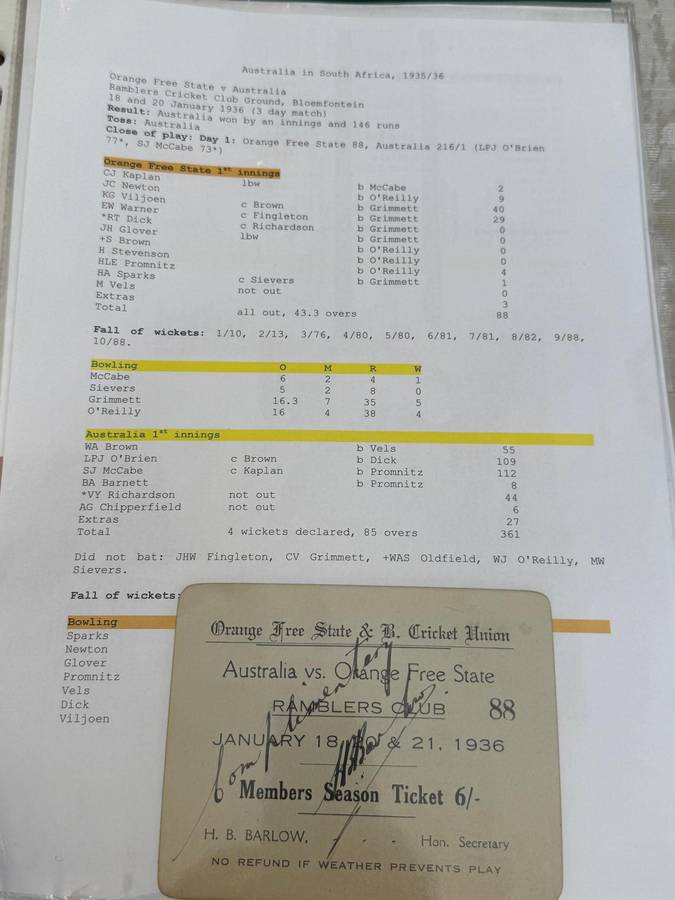 Australia in South Africa, 1935/36
Orange Free State v Australia
Ramblers Cricket Club Ground, Bloemfontein
18 and 20 January 1936 (3 day match)
Result: Australia won by an innings and 146 runs
Toss: Australia
Close of play: Day 1: Orange Free State 88, Australia 216/1 (LPJ O'Brien
77*, SJ McCabe 73*)
Orange Free State 1st innings
CJ Kaplan lbw b McCabe 2
JC Newton b O'Reilly 9
KG Viljoen c Brown b Grimmett 40
EW Warner c Fingleton b Grimmett 29
*RT Dick c Richardson b Grimmett 0
JH Glover lbw b Grimmett 0
+S Brown b O'Reilly 0
H Stevenson b O'Reilly 0
HLE Promnitz b O'Reilly 4
HA Sparks c Sievers b Grimmett 1
M Vels not out 0
Extras 3
Total all out, 43.3 overs 88
Fall of wickets: 1/10, 2/13, 3/76, 4/80, 5/80, 6/81, 7/81, 8/82, 9/88,
10/88.
Bowling O M R W
McCabe 6 2 4 1
Sievers 5 2 8 0
Grimmett 16.3 7 35 5
O'Reilly 16 4 38 4
Australia 1st innings
WA Brown b Vels 55
LPJ O'Brien c Brown b Dick 109
SJ McCabe c Kaplan b Promnitz 112
BA Barnett b Promnitz 8
*VY Richardson not out 44
AG Chipperfield not out 6
Extras 27
Total 4 wickets declared, 85 overs 361
Did not bat: JHW Fingleton, CV Grimmett, +WAS Oldfield, WJ O'Reilly, MW
Sievers.
Fall of wickets:
Bowling
Sparks
Newton
Glover
Promnitz
Vels
Dick
Viljoen
Orange Free State & B. Cricket Union
Australia vs. Orange Free State
RAMBLERS CLUB 88
JANUARY 18, 20 & 21, 1936
Members Season Ticket 6/-
H. B. BARLOW, - - - Hon. Secretary
NO REFUND IF WEATHER PREVENTS PLAY
Complimentary
HBBarlow